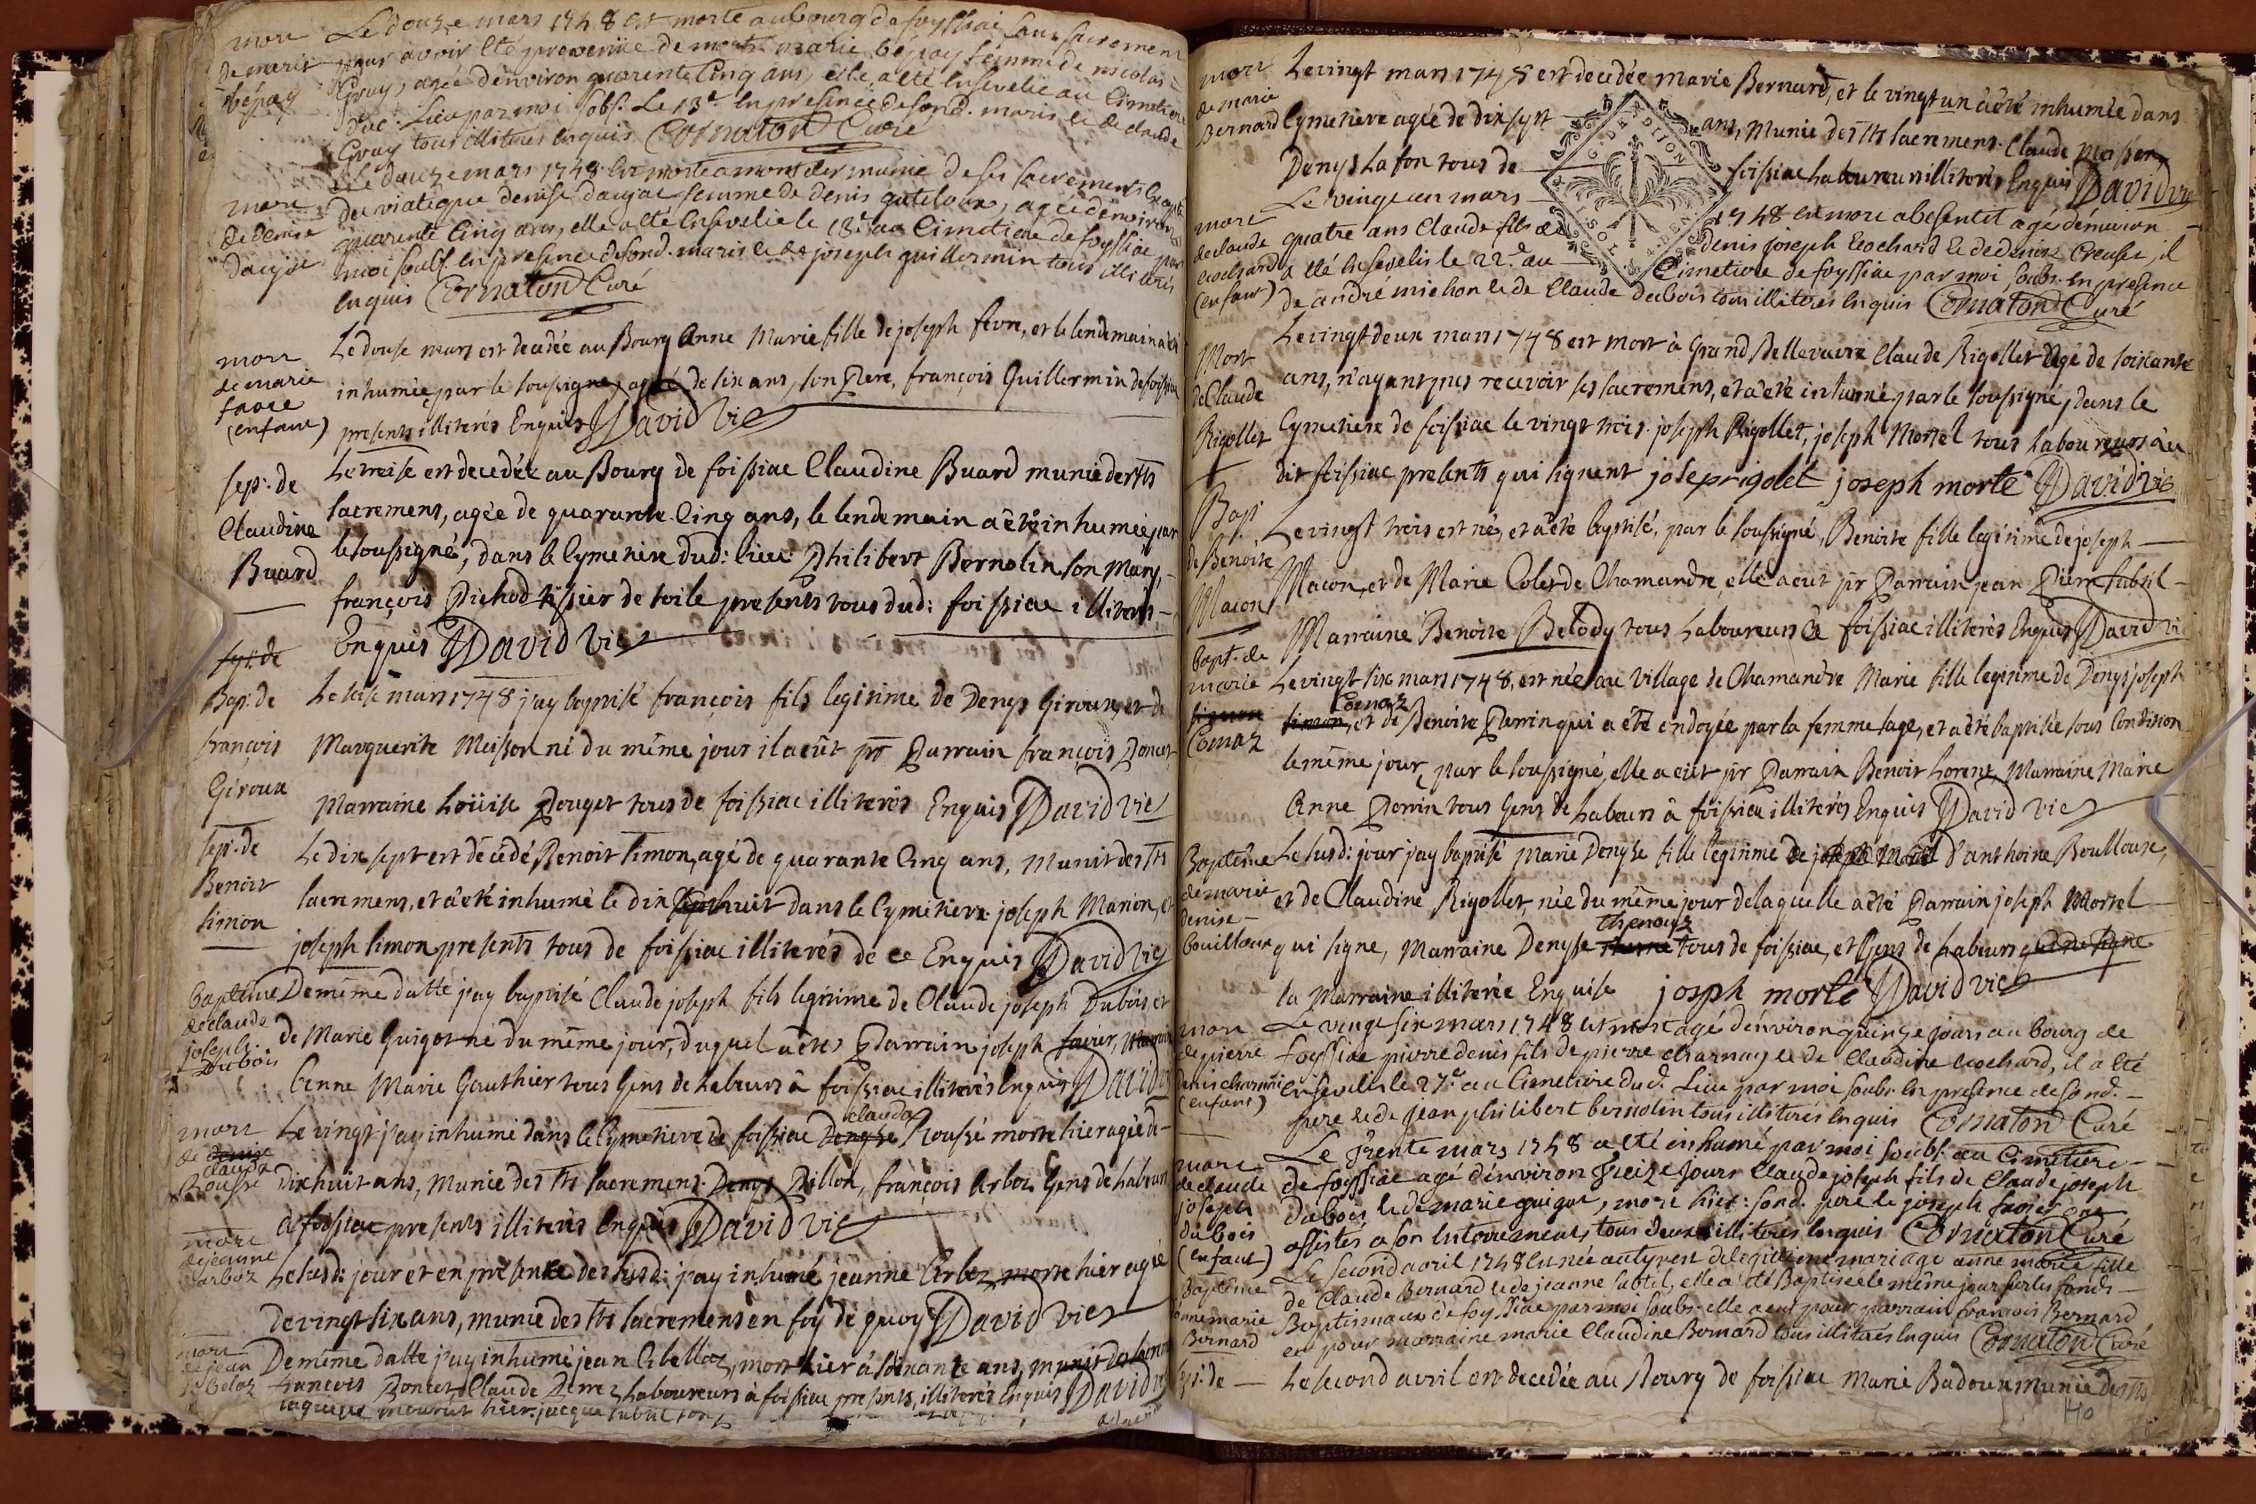 mort
de marie
bépay
Le douze mars 1748 est morte au bourg de foyssiac, sans sacrement
pour avoir été prevenüe de mort marie bépay femme de nicolas
Gray, agée d'environ quarente cinq ans, elle a été ensevelie au Cimetiere
dud. Lieu par moi sobs. Le 13e. en presence de sond. maris et de claude
Gray tous illiteres enquis Cornaton Curé
mort
de denise
daujae
Le douze mars 1748 est morte a montdler munie de ses sacrements excepté
du viatique denise daujac femme de denis gutelour, agée d'environ
quarente cinq ans, elle a été ensevelie le 13e au Cimetiere de foyssiac par
moi soubs. en presence de sond. maris et de joseph guillermin tous illiteres
enquis Cornaton Curé
mort
de marie
favre
(enfant)
Le douse mars est decedée au Bourg Anne Marie fille de joseph fevre, et le lendemain a été
inhumée par le soussigné, agée de six ans, son Pere, françois Guillermin de foissiac
presents illiterés Enquis David vic
sep: de
Claudine
Buard
Le treise est decedée au Bourg de foissiac Claudine Buard munie des sts
sacremens, agée de quarante cinq ans, le lendemain a été inhumée par
le soussigné, dans le Cymetiere dud: lieu Philibert Bernolin son Mary,
françois Pichod tissier de toile presents tous dud: foissiac illiterés
Enquis David vic
sep: de
Bap: de
françois
Giroux
Le seise mars 1748 j'ay baptisé françois fils legitime de Denys Giroux, et de
Marguerite Moisson né du même jour il a eüt pr Parrain françois Poncet,
Marraine Loüise Pouget tous de foissiac illiterés Enquis David vic
sep: de
Benoit
simon
Le dix sept est décédé Benoit simon, agé de quarante cinq ans, munit des sts
sacremens, et a été inhumé le dix huit dans le Cymetiere joseph Marion, et
joseph simon presents tous de foissiac illiterés de ce Enquis David vic
baptême
de claude
joseph
Dubois
De même datte j'ay baptisé Claude joseph fils legitime de Claude joseph Dubois et
de Marie Guigot né du même jour, duquel a été Parrain joseph favier, Marraine
Anne Marie Gauthier tous Gens de labeurs à foissiac illiterés Enquis David
mort
de denise
claudae
Rousse
Le vingt j'ay inhumé dans le Cymetiere de foissiac Denyse claudae Rousse morte hier agée de
dix huit ans, munie des sts sacremens Denys Pillon, françois Arboz Gens de labeurs
de foissiac presents illiterés Enquis David vic
mort
de jeanne
arboz
Le susd: jour et en presence des susd: j'ay inhumé jeanne Arboz, morte hier agée
de vingt six ans, munie des sts sacremens en foy de quoy David vic
mort
de jean
Belloz
De même datte j'ay inhumé jean Belloz, mort hier à soixante ans, munit des sacremens
françois Poncet, Claude Perrez laboureurs à foissiac presents, illiterés Enquis David
mort
de marie
Bernard
Le vingt mars 1748 est decedée Marie Bernard, et le vingt un a été inhumée dans
Cymetiere agée de dix sept ans, munie des sts sacremens Claude Moisson,
Denys Lafon tous de foissiac laboureur illiterés Enquis David vic
G. DE DIJON
mort
de claude
cochard
(enfant)
Le vingt un mars 1748 est mort a besentet agé d'environ
quatre ans Claude fils de denis joseph cochard et de denise Creuse, il
a été ensevelis le 22e. au Cimetiere de foyssiac par moi soubs. en presence
de andré michon et de Claude dubois tous illiteres enquis Cornaton Curé
Mort
de Claude
Rigollet
Le vingt deux mars 1748 est mort à Grand Bellevavre Claude Rigollet agé de soixante
ans, n'ayant pus recevoir ses sacremens, et a été inhumé par le soussigné, dans le
Cymetiere de foissiac le vingt trois. joseph Rigollet, joseph Mortel tous laboureurs au
dit foissiac presents qui signent josep rigolet joseph morte David vic
Bap:
de Benoite
Macon
Le vingt trois est née, et a été baptisé, par le soussigné, Benoite fille legitime de joseph
Macon, et de Marie Colet de Chamandre, elle a eut pr Parrain jean Pierre subtil
Marraine Benoite Belody tous laboureurs de foissiac illiterés Enquis David vic
bapt. de
marie
simon
Comaz
Le vingt six mars 1748, est née au Village de Chamandre Marie fille legitime de Denys joseph
simon Comaz, et de Benoite Perrin qui a été endoyée par la femme sage, et a été baptisée sous condition
le même jour, par le soussigné, elle a eüt pr Parrain Benoit Lorent, Marraine Marie
Anne Perrin tous Gens de labeurs à foissiac illiterés Enquis David vic
Baptême
de marie
denise
bouilloux
Le susd: jour j'ay baptisé Marie Denyse fille legitime de joseph d'anthoine Boulloux,
et de Claudine Rigollet, née du même jour de laquelle a été Parrain joseph Mortel
qui signe, Marraine Denyse Thenoys tous de foissiac, et Gens de labeurs qui ne signe
la Marraine illiterée Enquise josph morte David vic
mort
de pierre
denis charnai
(enfant)
Le vingt six mars 1748 est mort agé d'environ quinze jours au bourg de
foyssiac pierre denis fils de pierre charnay et de claudine cochard, il a été
ensevelis le 27e. au Cimetiere dud. Lieu par moi soubs. en presence de sond.
pere et de jean philibert bernolin tous illiterés enquis Cornaton Curé
mort
de claude
joseph
dubois
(enfant)
Le trente mars 1748 a été inhumé par moi soubs. au Cimetiere
de foyssiac agé d'environ treize jours claude joseph fils de Claude joseph
dubois et de marie guigot, mort hier: sond. pere et joseph favier ont
assistés a son enterrement, tous deux illiteres enquis Cornaton Curé
Baptême
anne marie
Bernard
Le second avril 1748 est née au tyret de legitime mariage anne marie fille
de Claude Bernard et de jeanne subtil, elle a été Baptisée le même jour sur les fonds
Baptismaux de foyssiac par moi soubs. elle a eut pour parrain françois Bernard
et pour marraine marie Claudine Bernard tous illiterés enquis Cornaton Curé
sep: de
Le second avril est decedée au Bourg de foissiac Marie Badoux munie des sts
40